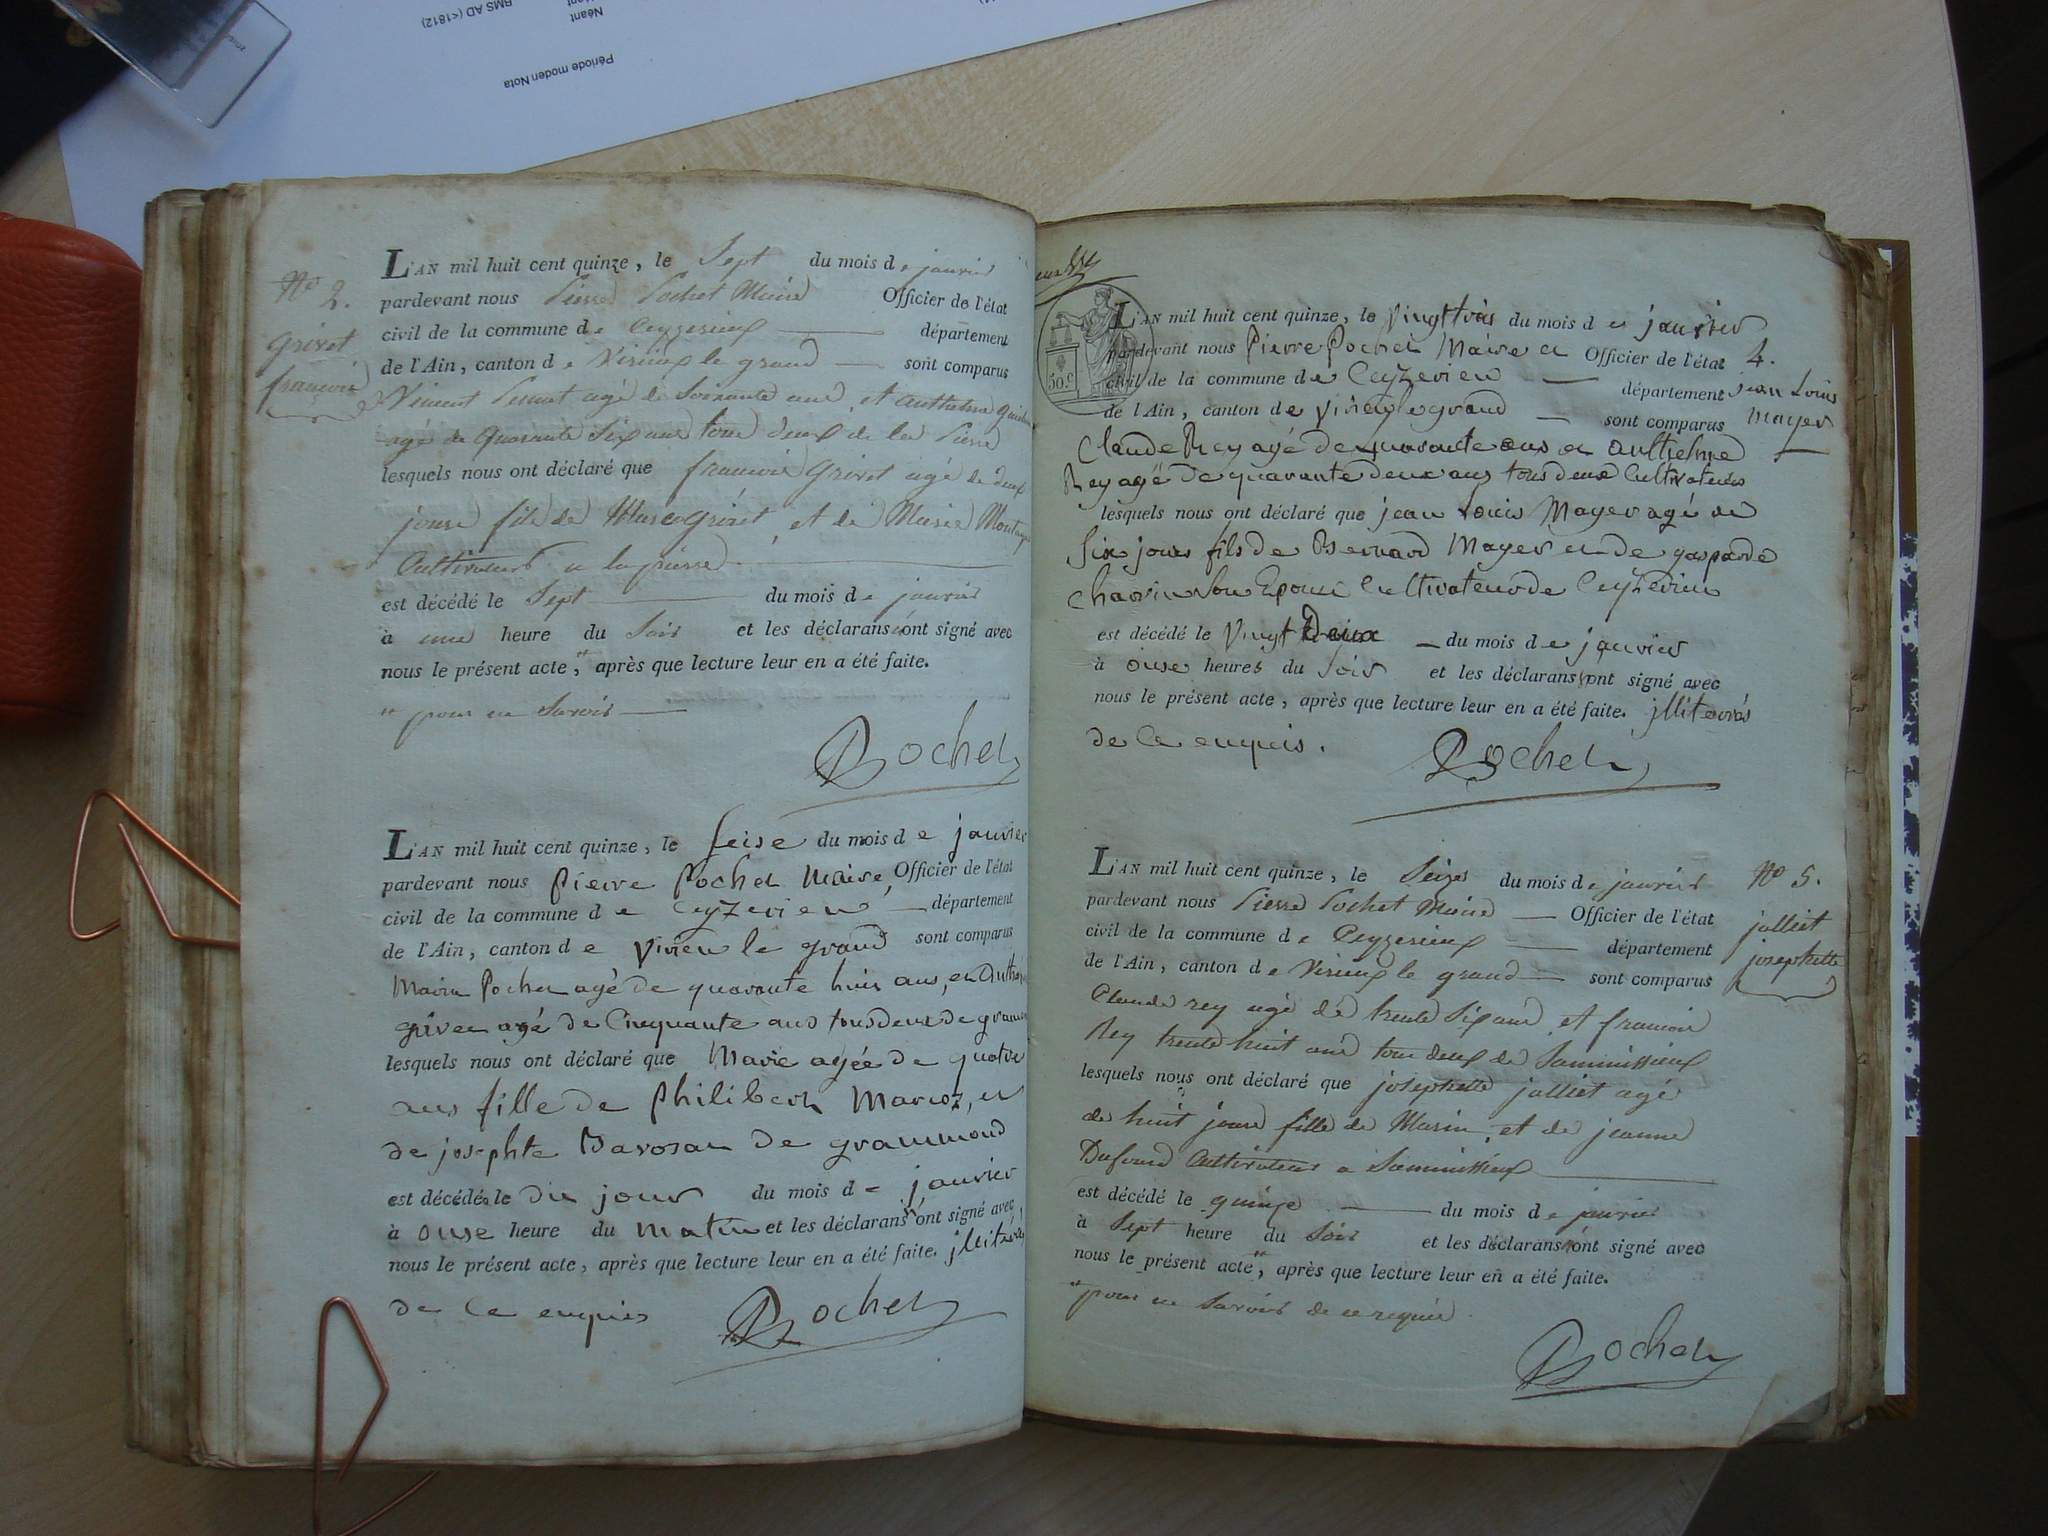 RMS AD (<1812)
Néant
Période moden Nota
L'AN mil huit cent quinze, le Sept du mois de janvier
No 2.
pardevant nous Pierre Pochet Maire Officier de l'état
civil de la commune de Ceyzerieux département
Grivet
de l'Ain, canton de Virieux le grand sont comparus
françois
Vincent agé de Soixante ans, et Anthelme
agé de Quarante Six ans tous deux de la Pierre
lesquels nous ont déclaré que françois Grivet agé de deux
jours fils de Marc Grivet, et de Marie
Cultivateurs a la pierre.
est décédé le Sept du mois de janvier
à une heure du Soir et les déclarans ont signé avec
nous le présent acte, après que lecture leur en a été faite.
pour ne Savoir
Pochet
L'AN mil huit cent quinze, le seise du mois de janvier
pardevant nous Pierre Pochet Maire, Officier de l'état
civil de la commune de Ceyzerieu département
de l'Ain, canton de Virieu le grand sont comparus
Marin Pochet agé de quarante huit ans, et
grivet agé de Cinquante ans tous deux de
lesquels nous ont déclaré que Marie agée de quatre
ans fille de Philibert Marcoz, et
de josephte de grammond
est décédée le dit jour du mois de janvier
à onse heure du matin et les déclarans ont signé avec
nous le présent acte, après que lecture leur en a été faite. jllitérés
de ce enquis
Pochet
50.c
L'AN mil huit cent quinze, le Vingt trois du mois de janvier
pardevant nous Pierre Pochet Maire et Officier de l'état
4.
civil de la commune de Ceyzerieu département
jean Louis
de l'Ain, canton de Virieu le grand sont comparus
Mayer
Claude Rey agé de quarante ans et Anthelme
Rey agé de quarante deux ans tous deux Cultivateurs
lesquels nous ont déclaré que jean Louis Mayer agé de
Six jours fils de Bernard Mayer et de gasparde
son Epouse Cultivateur de Ceyzerieu
est décédé le Vingt Deux du mois de janvier
à onse heures du soir et les déclarans ont signé avec
nous le présent acte, après que lecture leur en a été faite. jllitérés
de ce enquis.
Pochet
L'AN mil huit cent quinze, le Seize du mois de janvier
No 5.
pardevant nous Pierre Pochet Maire Officier de l'état
civil de la commune de Ceyzerieux département
jolliet
de l'Ain, canton de Virieux le grand sont comparus
josephette
Claude rey agé de trente Six ans, et francois
Rey trente huit ans tous deux de
lesquels nous ont déclaré que josephette jolliet agé
de huit jours fille de Marin, et de jeanne
Cultivateurs a
est décédé le quinze du mois de janvier
à Sept heure du Soir et les déclarans ont signé avec
nous le présent acte, après que lecture leur en a été faite.
pour ne Savoir de ce requis.
Pochet